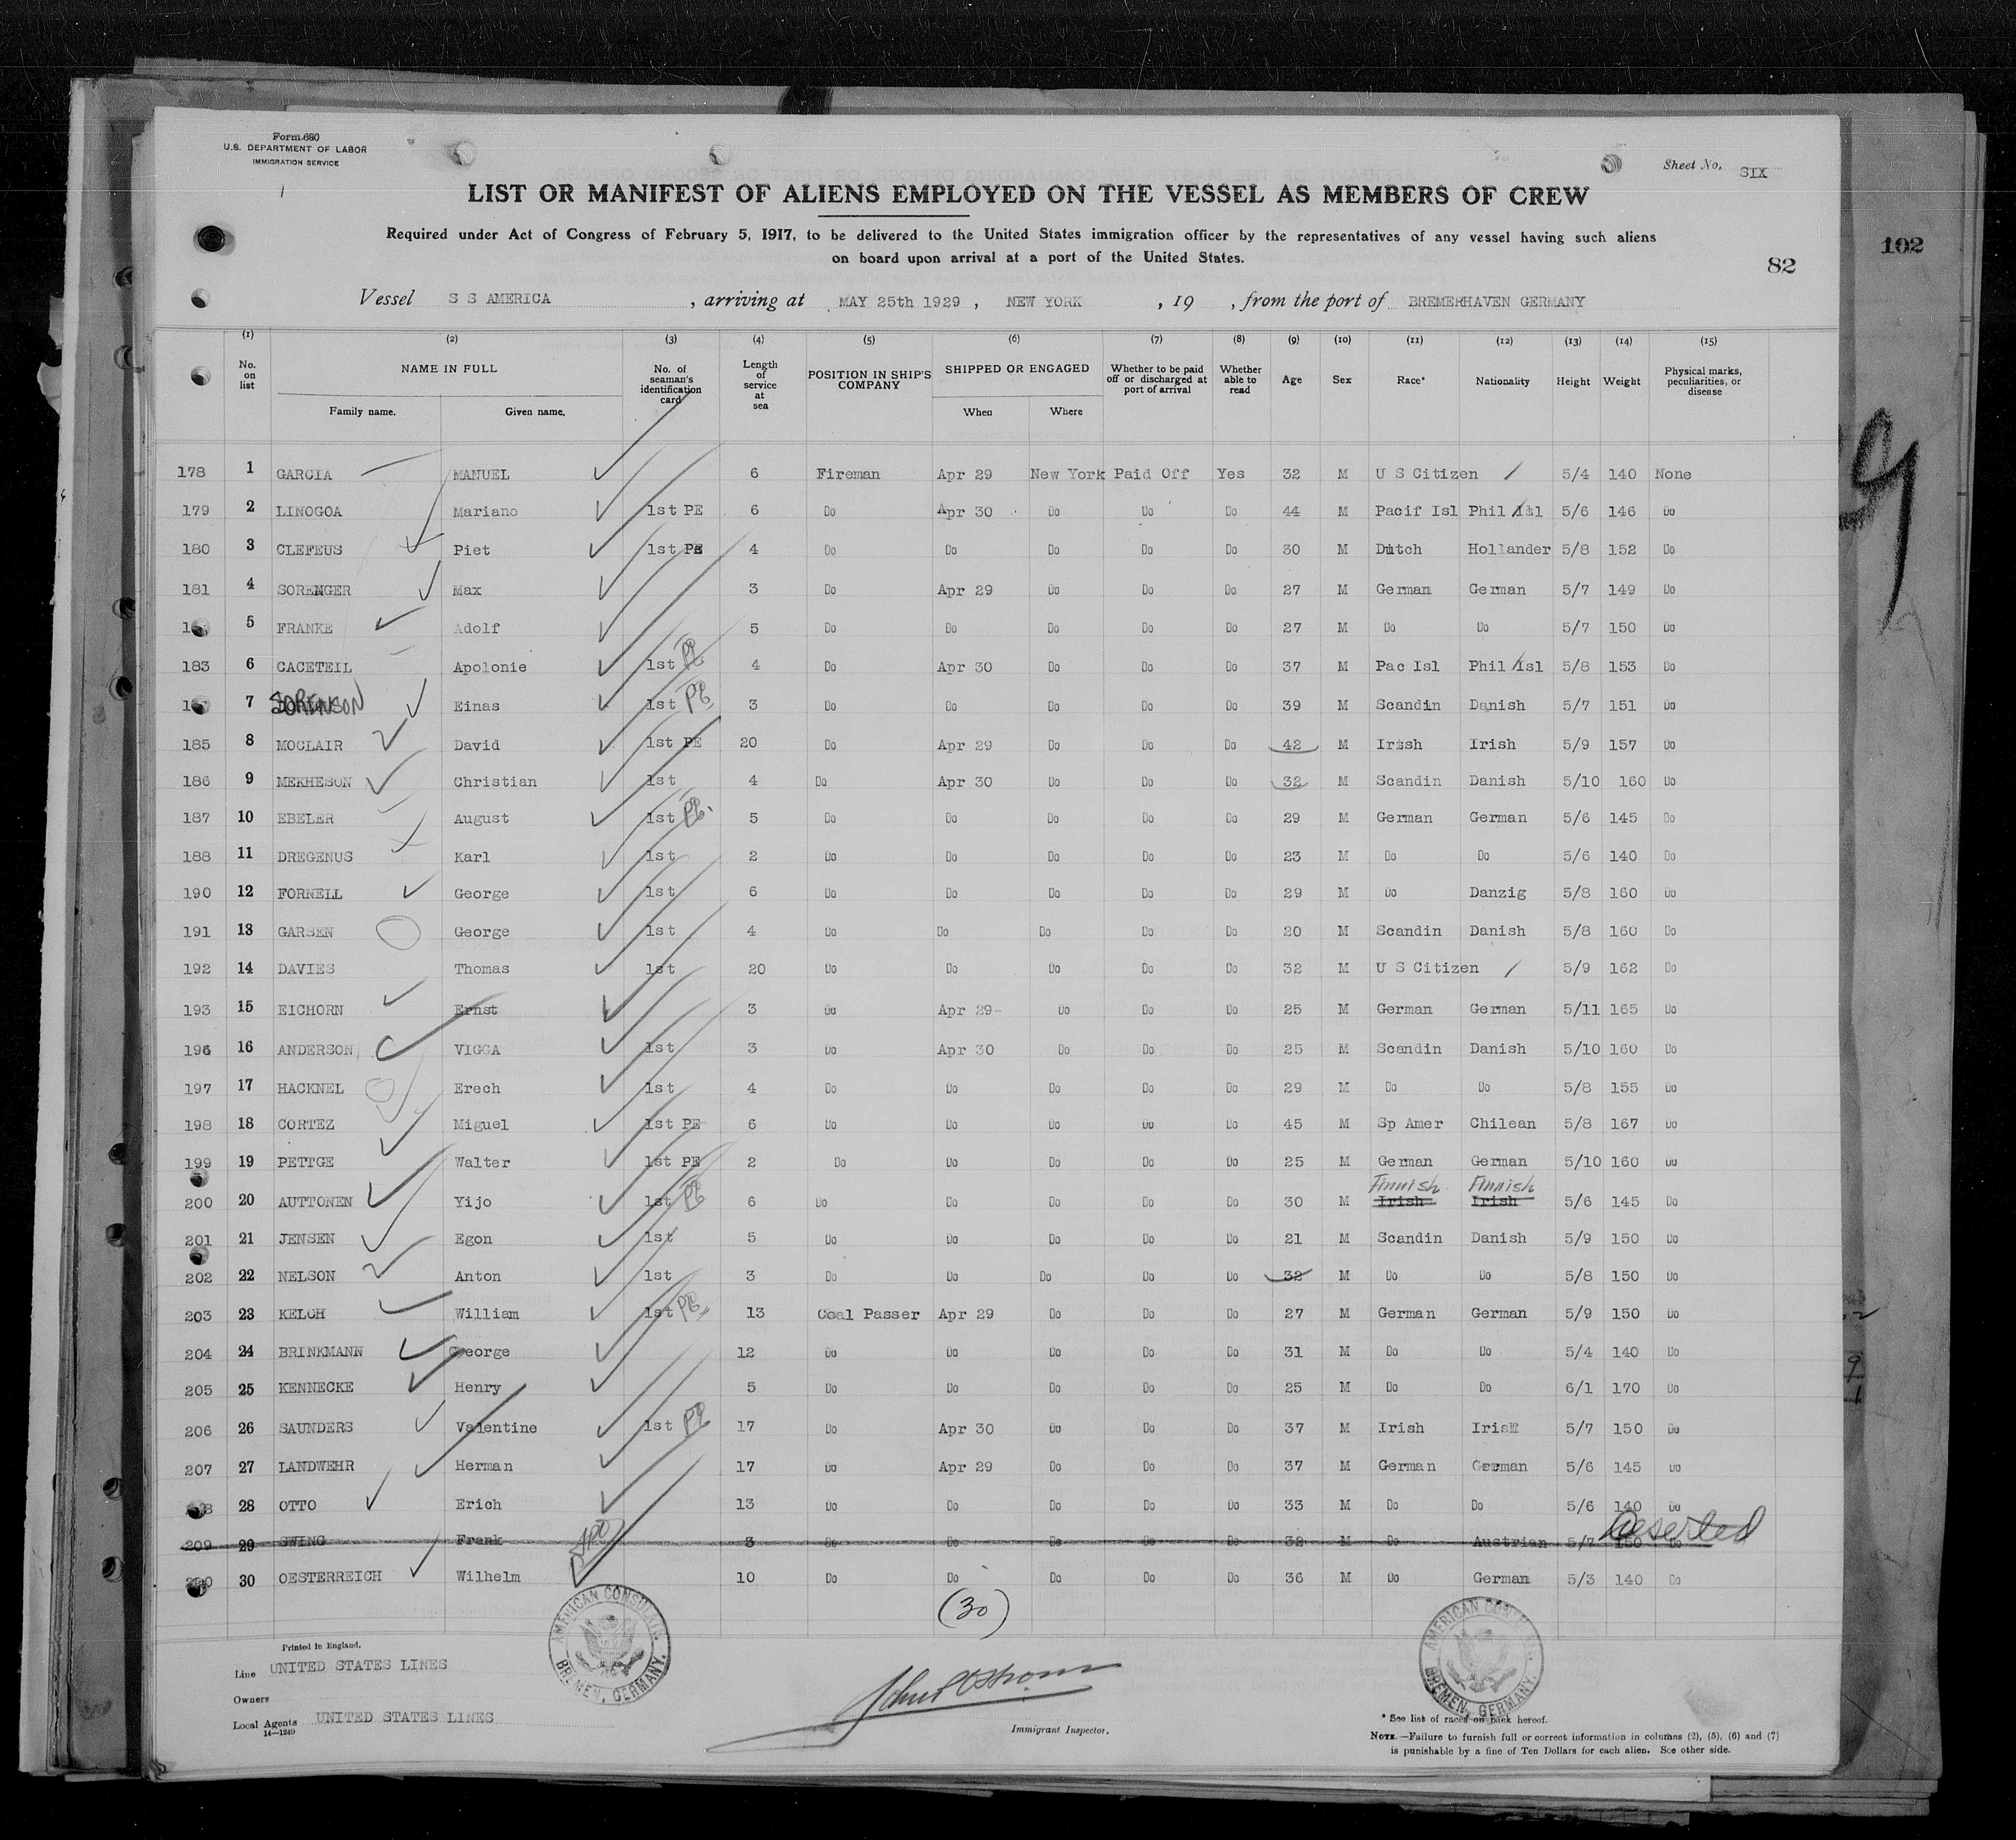 Form 680
U.S. DEPARTMENT OF LABOR
IMMIGRATION SERVICE
Sheet No. SIX
LIST OR MANIFEST OF ALIENS EMPLOYED ON THE VESSEL AS MEMBERS OF CREW
Required under Act of Congress of February 5, 1917, to be delivered to the United States immigration officer by the representatives of any vessel having such aliens
on board upon arrival at a port of the United States.
102
82
Vessel S S AMERICA , arriving at MAY 25th 1929 , NEW YORK , 19 , from the port of BREMERHAVEN GERMANY
(1) (2) (3) (4) (5) (6) (7) (8) (9) (10) (11) (12) (13) (14) (15)
No. on list NAME IN FULL Family name. Given name. No. of seaman's identification card Length of service at sea POSITION IN SHIP'S COMPANY SHIPPED OR ENGAGED When Where Whether to be paid off or discharged at port of arrival Whether able to read Age Sex Race* Nationality Height Weight Physical marks, peculiarities, or disease
178 1 GARCIA MANUEL 6 Fireman Apr 29 New York Paid Off Yes 32 M U S Citizen 5/4 140 None
179 2 LINOGOA Mariano 1st PE 6 Do Apr 30 Do Do Do 44 M Pacif Isl Phil Isl 5/6 146 Do
180 3 CLEFEUS Piet 1st PE 4 Do Do Do Do Do 30 M Dutch Hollander 5/8 152 Do
181 4 SORENGER Max 3 Do Apr 29 Do Do Do 27 M German German 5/7 149 Do
5 FRANKE Adolf 5 Do Do Do Do Do 27 M Do Do 5/7 150 Do
183 6 CACETEIL Apolonie 1st PE 4 Do Apr 30 Do Do Do 37 M Pac Isl Phil Isl 5/8 153 Do
7 SORENSON Einas 1st PE 3 Do Do Do Do Do 39 M Scandin Danish 5/7 151 Do
185 8 MOCLAIR David 1st PE 20 Do Apr 29 Do Do Do 42 M Irish Irish 5/9 157 Do
186 9 MEKHESON Christian 1st 4 Do Apr 30 Do Do Do 32 M Scandin Danish 5/10 160 Do
187 10 EBELER August 1st PE. 5 Do Do Do Do Do 29 M German German 5/6 145 Do
188 11 DREGENUS Karl 1st 2 Do Do Do Do Do 23 M Do Do 5/6 140 Do
190 12 FORNELL George 1st 6 Do Do Do Do Do 29 M Do Danzig 5/8 160 Do
191 13 GARSEN George 1st 4 Do Do Do Do Do 20 M Scandin Danish 5/8 160 Do
192 14 DAVIES Thomas 1st 20 Do Do Do Do Do 32 M U S Citizen 5/9 162 Do
193 15 EICHORN Ernst 3 Do Apr 29- Do Do Do 25 M German German 5/11 165 Do
196 16 ANDERSON, VIGGA 1st 3 Do Apr 30 Do Do Do 25 M Scandin Danish 5/10 160 Do
197 17 HACKNEL Erech 1st 4 Do Do Do Do Do 29 M Do Do 5/8 155 Do
198 18 CORTEZ Miguel 1st PE 6 Do Do Do Do Do 45 M Sp Amer Chilean 5/8 167 Do
199 19 PETTGE Walter 1st PE 2 Do Do Do Do Do 25 M German German 5/10 160 Do
Finnish Finnish
200 20 AUTTONEN Yijo 1st PE 6 Do Do Do Do Do 30 M Irish Irish 5/6 145 Do
201 21 JENSEN Egon 1st 5 Do Do Do Do Do 21 M Scandin Danish 5/9 150 Do
202 22 NELSON Anton 1st 3 Do Do Do Do Do 32 M Do Do 5/8 150 Do
203 23 KELCH William 1st PE 13 Coal Passer Apr 29 Do Do Do 27 M German German 5/9 150 Do
204 24 BRINKMANN George 12 Do Do Do Do Do 31 M Do Do 5/4 140 Do
205 25 KENNECKE Henry 5 Do Do Do Do Do 25 M Do Do 6/1 170 Do
206 26 SAUNDERS Valentine 1st PE 17 Do Apr 30 Do Do Do 37 M Irish Irish 5/7 150 Do
207 27 LANDWEHR Herman 17 Do Apr 29 Do Do Do 37 M German German 5/6 145 Do
28 OTTO Erich 13 Do Do Do Do Do 33 M Do Do 5/6 140 Do
Deserted
209 29 SWING Frank 3 Do Do Do Do Do 32 M Do Austrian 5/7 150 Do
30 OESTERREICH Wilhelm 10 Do Do Do Do Do 36 M Do German 5/3 140 Do
(30)
AMERICAN CONSULATE. BREMEN, GERMANY.
AMERICAN BREMEN, GERMANY.
Printed in England.
Line UNITED STATES LINES
Owners
Local Agents UNITED STATES LINES
14—1240
Immigrant Inspector.
* See list of races on back hereof.
NOTE.—Failure to furnish full or correct information in columns (2), (5), (6) and (7)
is punishable by a fine of Ten Dollars for each alien. See other side.